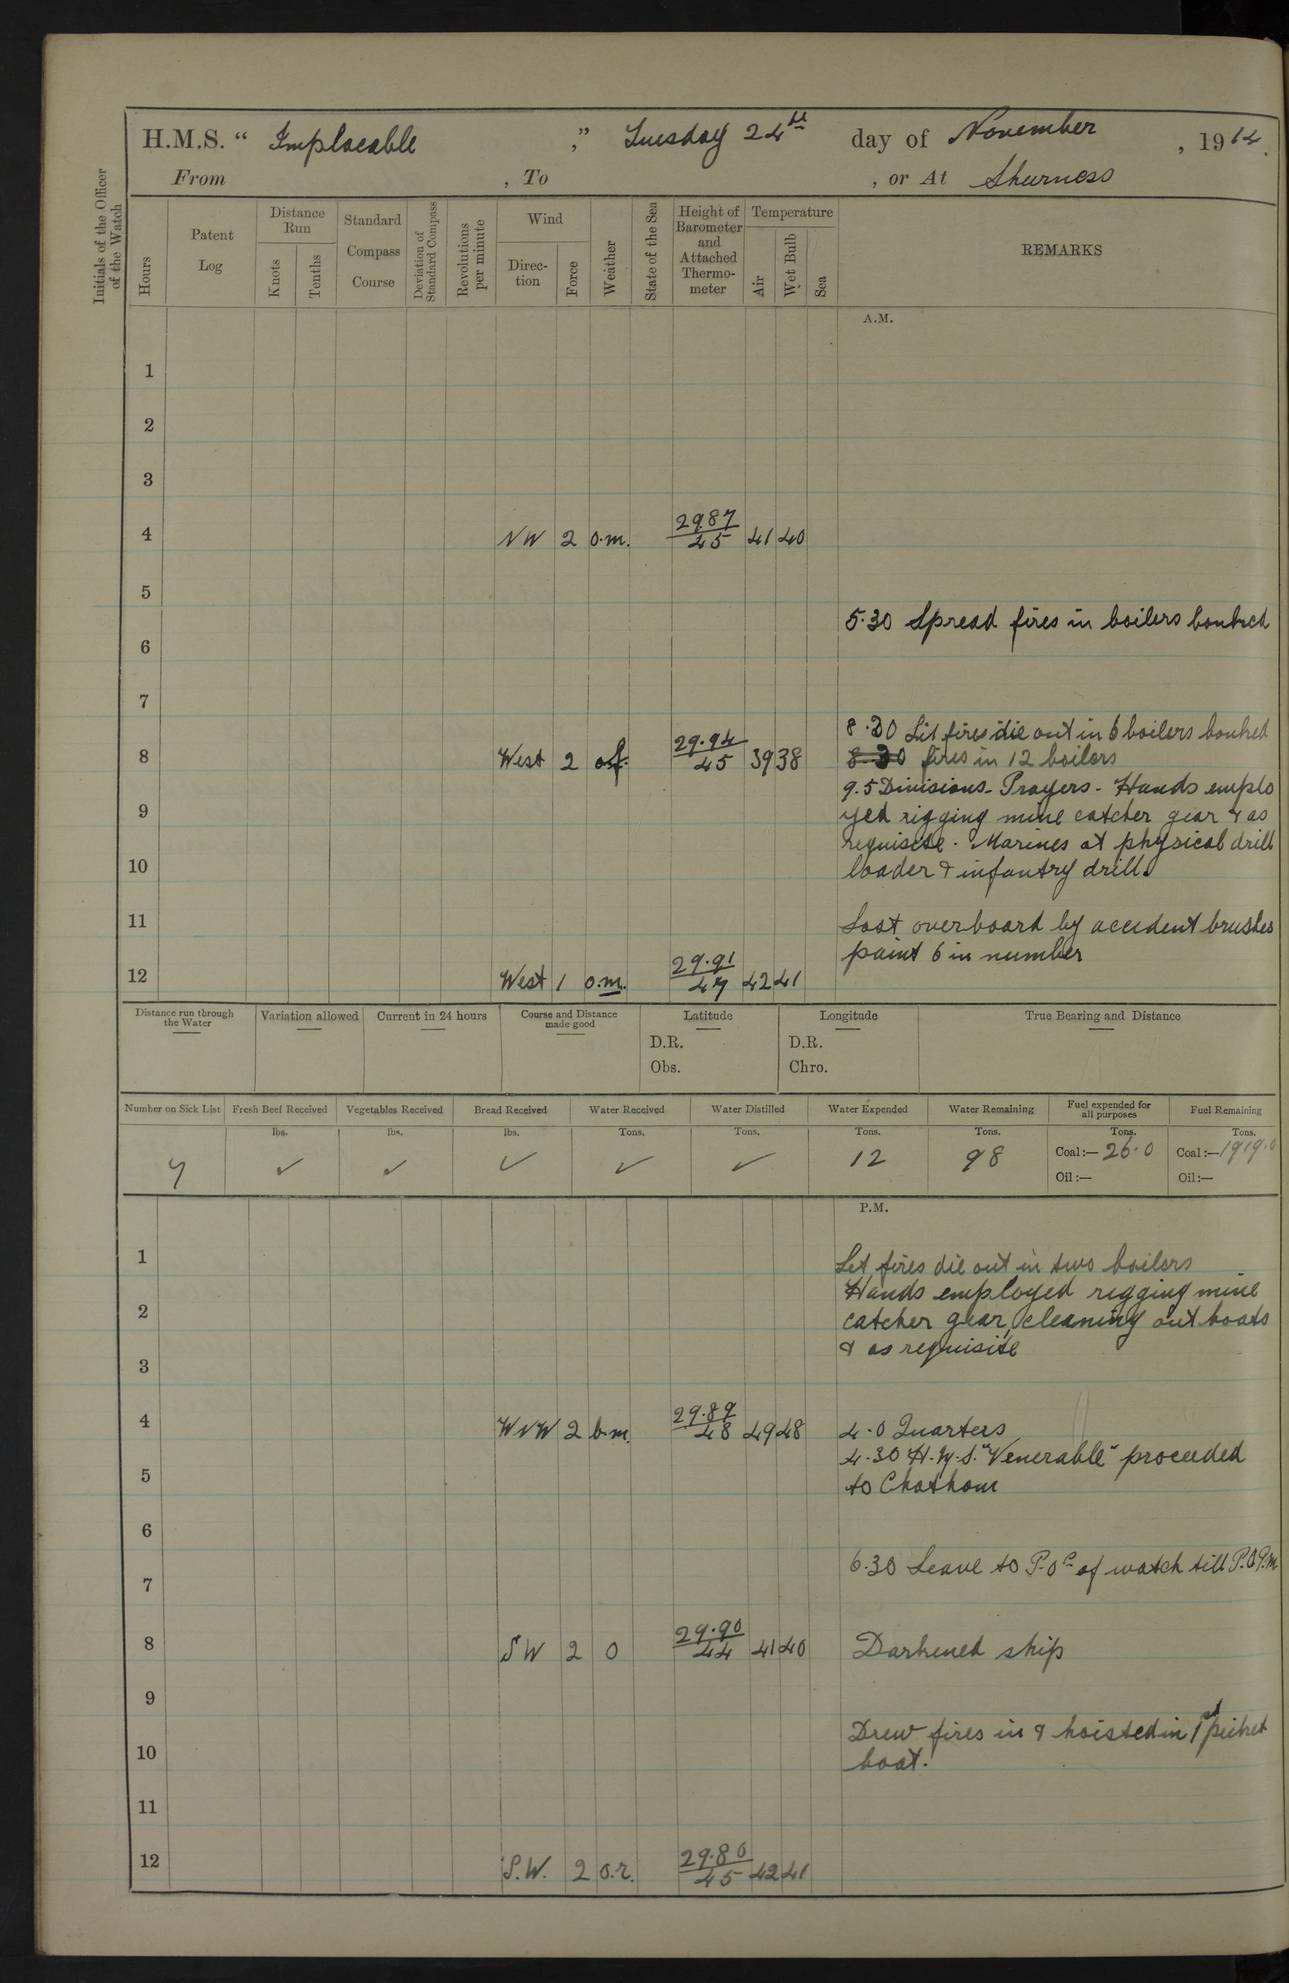 H.M.S. “ Implacable ,” Tuesday 24th day of November , 1914.
From , To , or At Sheerness
Initials of the Officer of the Watch
Hours
Patent Log
Distance Run
Knots
Tenths
Standard Compass Course
Deviation of Standard Compass
Revolutions per minute
Wind
Direction
Force
Weather
State of the Sea
Height of Barometer and Attached Thermometer
Temperature
Air
Wet Bulb
Sea
REMARKS
A.M.
1
2
3
4 NW 2 o.m. 29.87 / 45 41 40
5
5.30 Spread fires in boilers banked
6
7
8.30 Let fires die out in 6 boilers banked
8 West 2 o.f. 29.94 / 45 39 38 8.30 fires in 12 boilers
9.5 Divisions - Prayers - Hands emplo
9 yed rigging mine catcher gear & as
requisite. Marines at physical drill
10 loader & infantry drill.
11 Lost overboard by accident brushes
paint 6 in number
12 West 1 o.m. 29.91 / 47 42 41
Distance run through the Water
Variation allowed
Current in 24 hours
Course and Distance made good
Latitude
D.R.
Obs.
Longitude
D.R.
Chro.
True Bearing and Distance
Number on Sick List Fresh Beef Received Vegetables Received Bread Received Water Received Water Distilled Water Expended Water Remaining Fuel expended for all purposes Fuel Remaining
lbs. lbs. lbs. Tons. Tons. Tons. Tons. Tons. Tons.
7 ✓ ✓ ✓ ✓ ✓ 12 98 Coal:— 26.0 Coal:— 1919.0
Oil:— Oil:—
P.M.
1 Let fires die out in two boilers
Hands employed rigging mine
2 catcher gear, cleaning out boats
& as requisite
3
4 WNW 2 b.m. 29.89 / 48 49 48 4.0 Quarters
4.30 H.M.S. "Venerable" proceeded
5 to Chatham
6
6.30 Leave to P.Os of watch till
7
8 SW 2 o 29.90 / 44 41 40 Darkened ship
9
Drew fires in & hoisted in 1st picket
10 boat.
11
12 S.W. 2 o.r. 29.80 / 45 42 41